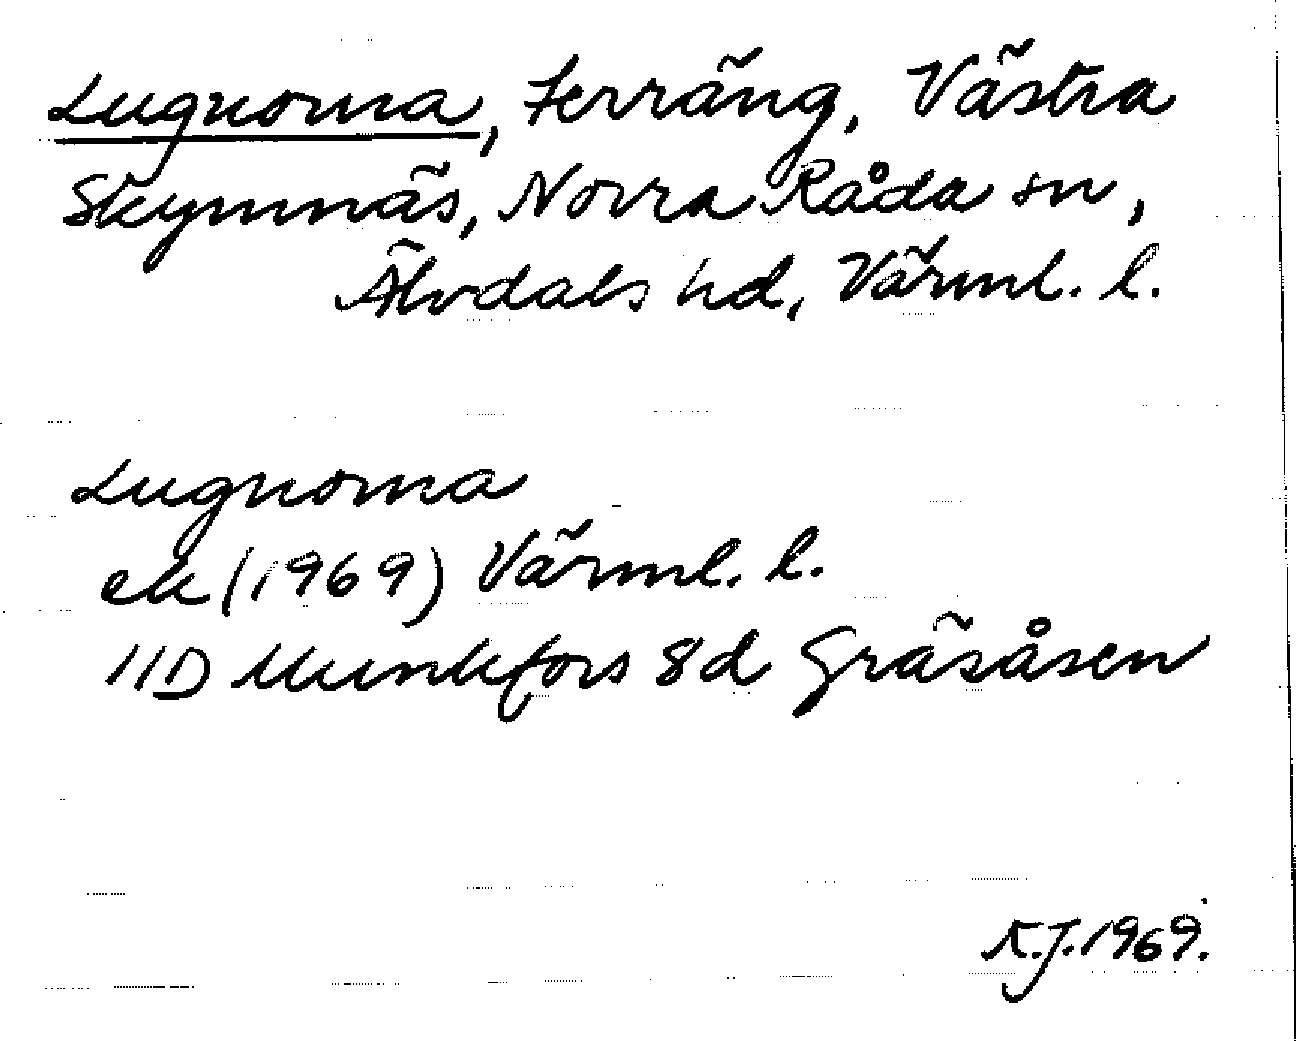 Lugnoma, Terräng, Västra
Skymnäs, Norra Råda sn,
Älvdals hd, Värml. l.
Lugnoma
ek (1969) Värml. l.
11D Munkfors 8d Gräsåsen
K.J. 1969.